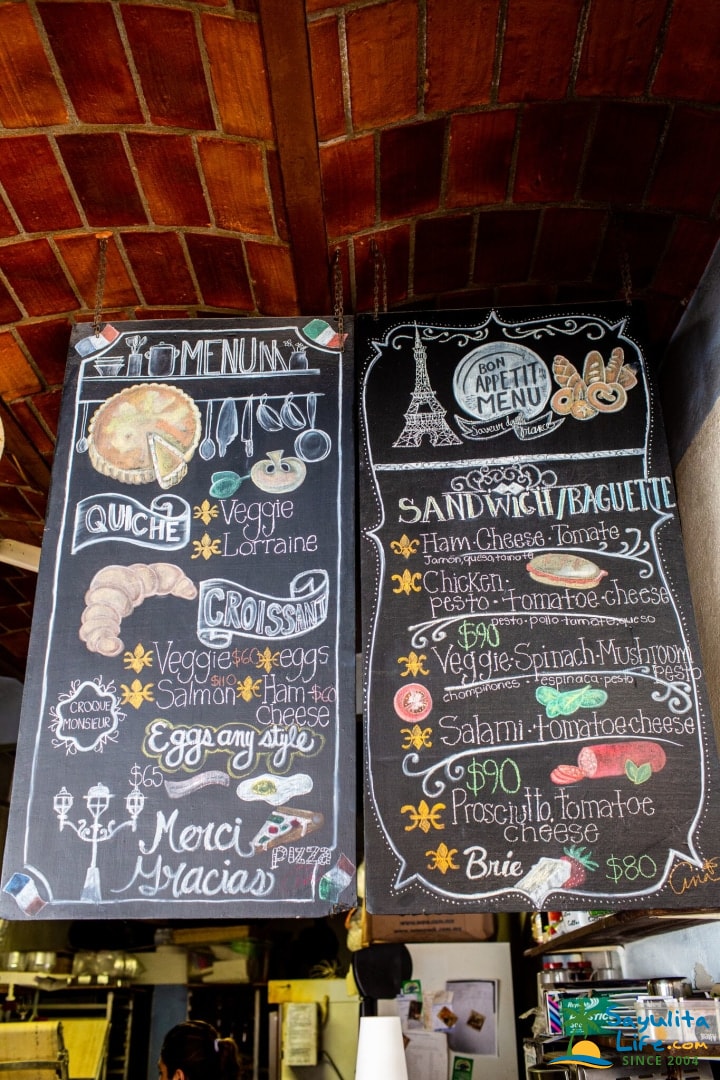 MENU
QUICHE
Veggie
Lorraine
CROISSANT
Veggie $60 eggs
Salmon $110 Ham $60
cheese
CROQUE
MONSIEUR
Eggs any style
$65
Merci
Gracias
PIZZA
BON
APPETIT
MENU
SANDWICH/BAGUETTE
Ham·Cheese·Tomate
Jamón, queso, tomate
Chicken·
pesto·Tomatoe·cheese
pesto·pollo·tomate, queso
$90
Veggie·Spinach·Mushroom
pesto
champiñones·espinaca·pesto
Salami·tomatoe·cheese
$90
Prosciutto, tomatoe
cheese
Brie $80
SayulitaLife.com
SINCE 2004